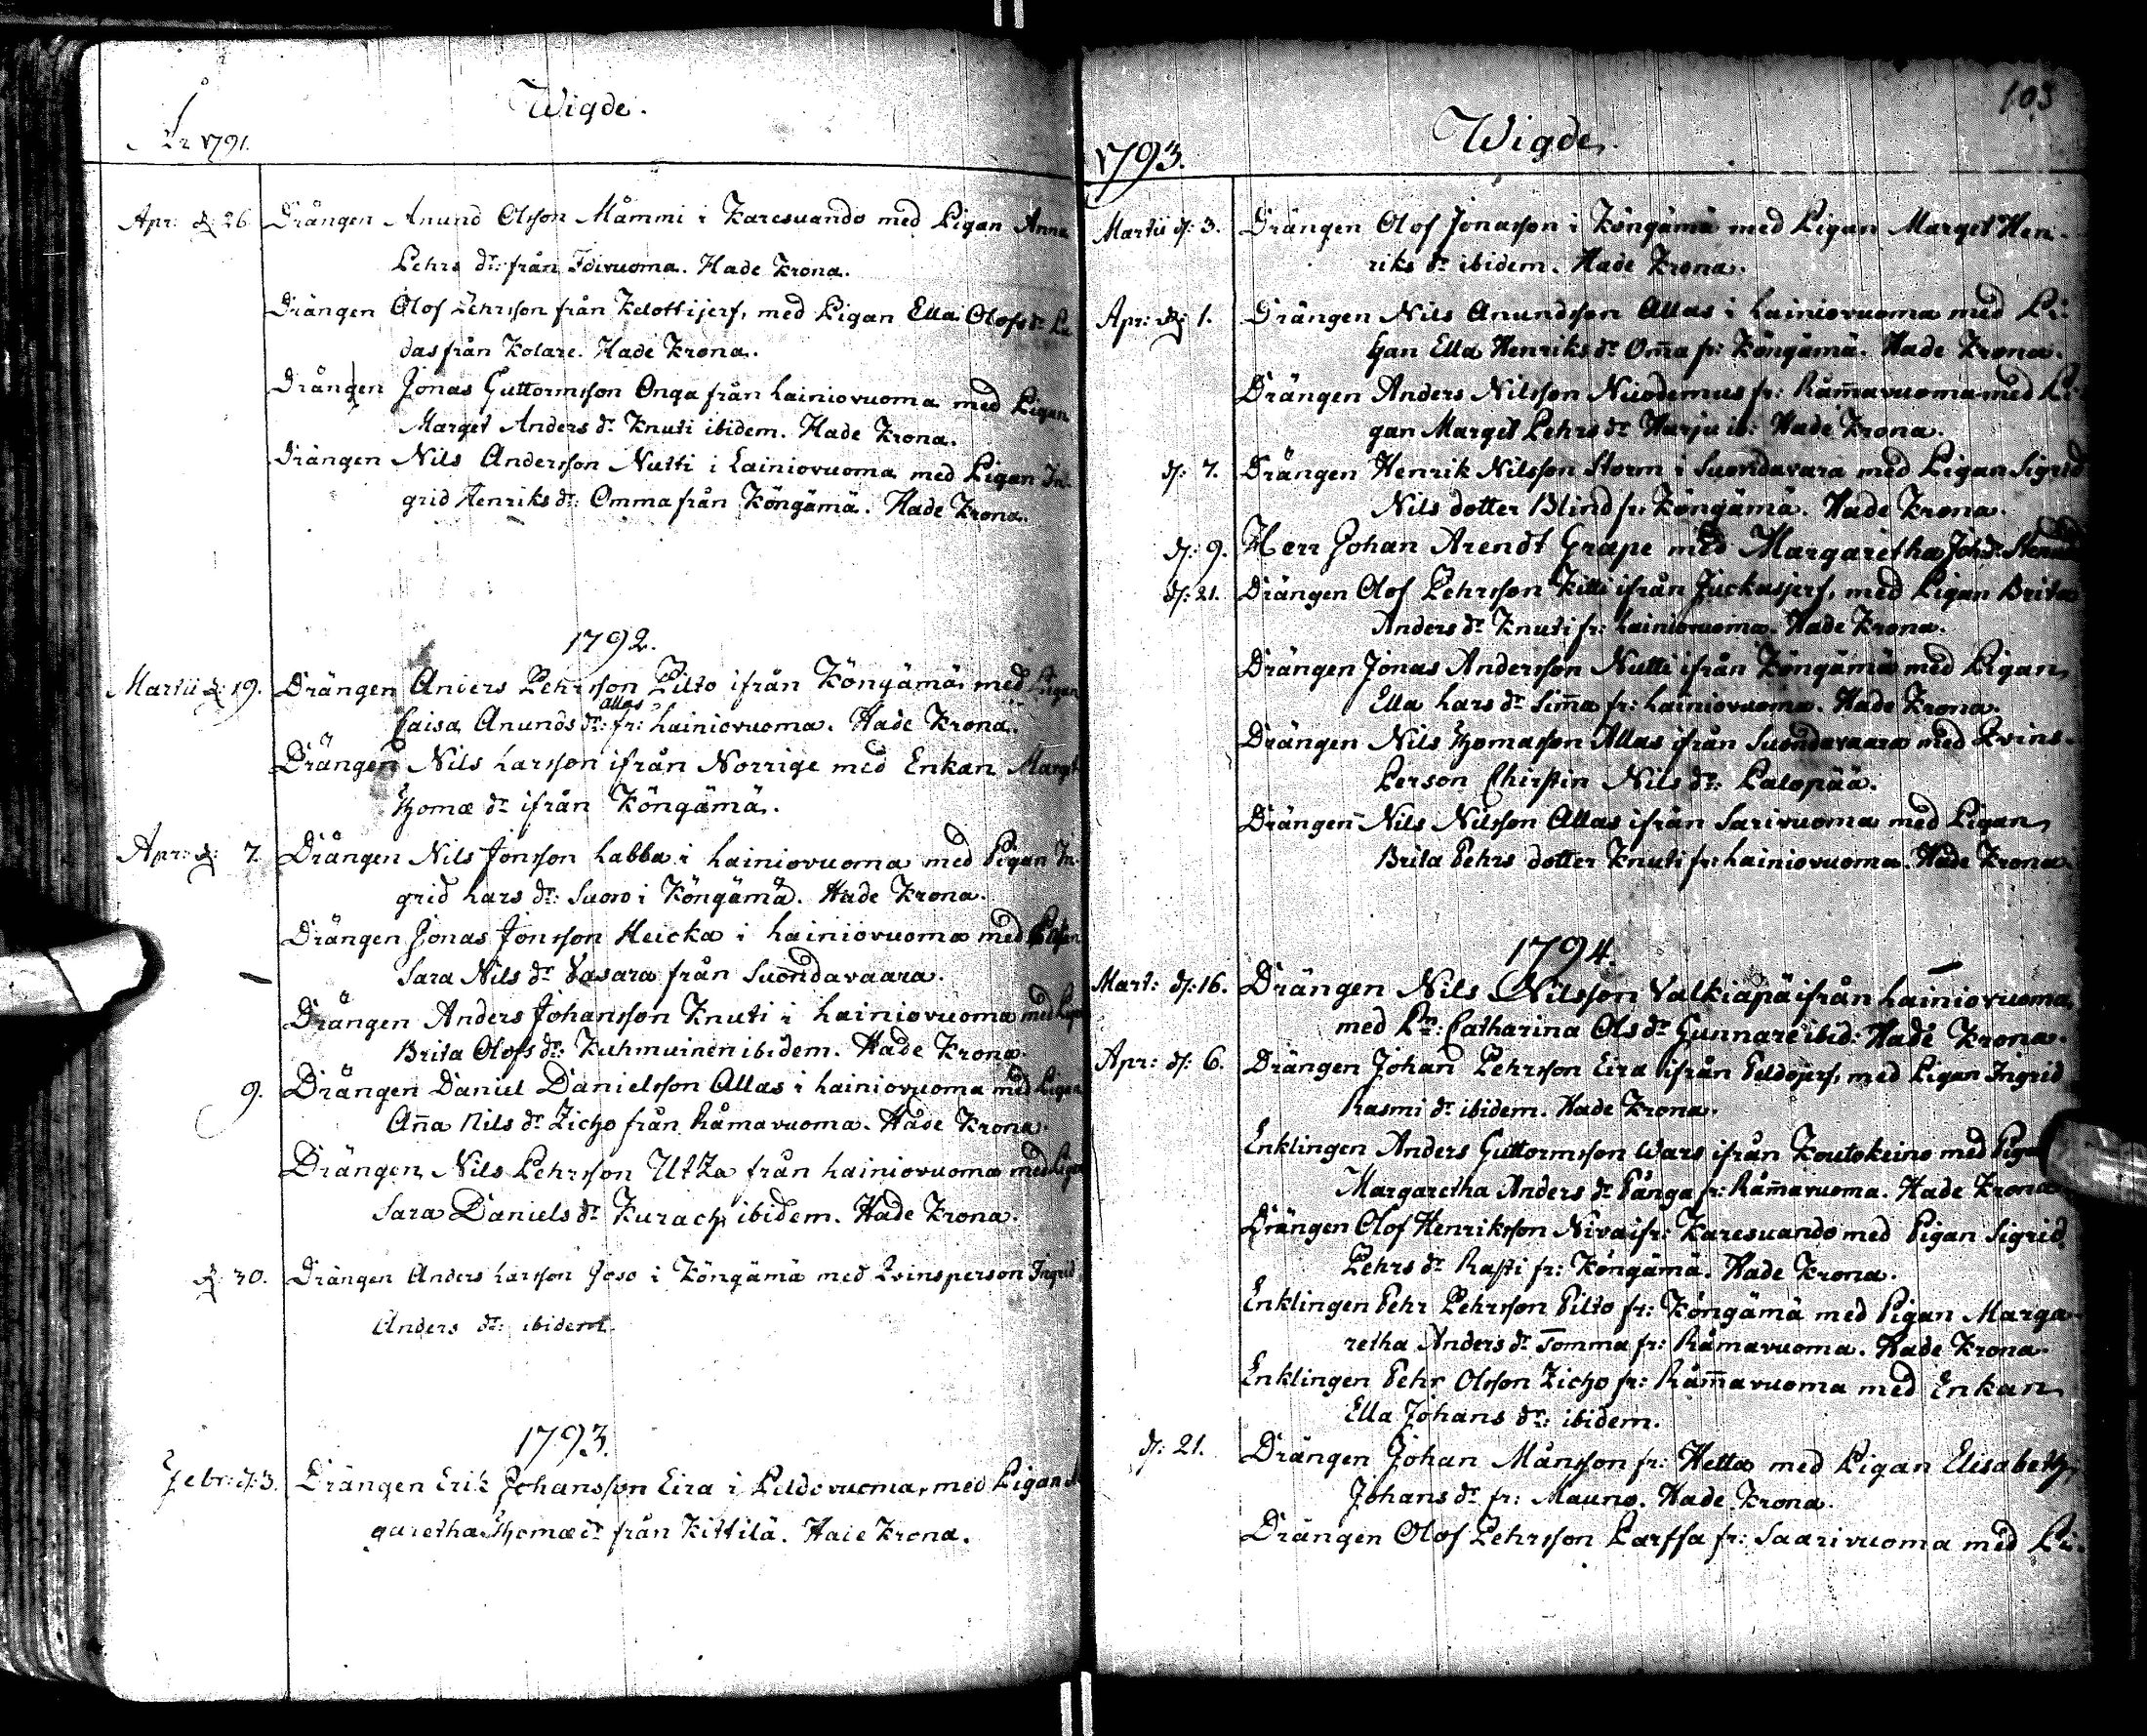 Wigde.
År 1791.
Apr: d: 26 Drängen Anund Olsson Mämmi i Karesuando med Pigan Anna
Pehrs dr: från Idivuoma. Hade Krona.
Drängen Olof Pehrsson från Kelottijerf, med Pigan Ella Olofs dr
das från Kolare. Hade Krona.
Drängen Jonas Guttormsson Onga från Lainiovuoma med Pigan
Marget Anders dr Knuti ibidem. Hade Krona.
Drängen Nils Andersson Nutti i Lainiovuoma med Pigan In-
grid Henriks dr: Omma från Köngämä. Hade Krona.
1792.
Martii d: 19. Drängen Anders Pehrsson Pilto ifrån Köngämä med Pigan
Caisa Anunds dr: Allas fr: Lainiovuoma. Hade Krona.
Drängen Nils Larsson ifrån Norrige med Enkan Margt
Thomæ dr ifrån Köngämä.
Apr: d: 7. Drängen Nils Jonsson Labba i Lainiovuoma med Pigan In-
grid Lars dr: Suow i Köngämä. Hade Krona.
Drängen Jonas Jonsson Heicka i Lainiovuoma med
Sara Nils dr Vasara från Suondavaara.
Drängen Anders Johansson Knuti i Lainiovuoma med Pigan
Brita Olofs dr: Kuhmuinen ibidem. Hade Krona.
9. Drängen Daniel Danielsson Allas i Lainiovuoma med Pigan
Aña Nils dr Zicho från Råmavuoma. Hade Krona.
Drängen Nils Pehrsson Utza från Lainiovuoma med Pigan
Sara Daniels dr Kurach ibidem. Hade Krona.
d: 30. Drängen Anders Larsson Joso i Köngämä med Qvinsperson Ingrid
Anders dr: ibidem.
1793.
Febr: d: 3. Drängen Erik Johansson Eira i Peldovuoma, med Pigan
garetha Thomæ dr från Kittilä. Hade Krona.
103
Wigde.
1793.
Martii d: 3. Drängen Olof Jonasson i Köngämä med Pigan Marget Hen-
riks dr ibidem. Hade Krona.
Apr: d: 1. Drängen Nils Anundsson Allas i Lainiovuoma med Pi-
gan Ella Henriks dr Om̄a fr: Köngämä. Hade Krona.
Drängen Anders Nilsson Nicodemus fr: Råm̄avuoma med Pi-
gan Marget Pehrs dr Harju ib: Hade Krona.
d: 7. Drängen Henrik Nilsson Storm i Suondavara med Pigan Sigrid
Nils dotter Blind fr: Köngämä. Hade Krona.
d: 9. Herr Johan Arendt Grape med Margaretha Joh:dr
d: 21. Drängen Olof Pehrsson Kitti ifrån Juckasjerf, med Pigan Brita
Anders dr Knuti fr: Lainiovuoma. Hade Krona.
Drängen Jonas Andersson Nutti ifrån Köngämä med Pigan
Ella Lars dr Sim̄a fr: Lainiovuoma. Hade Krona.
Drängen Nils Thomasson Allas ifrån Suondavaara med Qvins-
Person Cherstin Nils dr: Palopää.
Drängen Nils Nilsson Allas ifrån Sarivuoma med Pigan
Brita Pehrs dotter Knuti fr: Lainiovuoma. Hade Krona
1794.
Mart: d: 16. Drängen Nils Nilsson Valkiapä ifrån Lainiovuoma
med Pn: Catharina Ols dr Gunnare ibid: Hade Krona.
Apr: d: 6. Drängen Johan Pehrsson Eira ifrån Peldojerf, med Pigan Ingrid
Rasmi dr ibidem. Hade Krona.
Enklingen Anders Guttormsson Wars ifrån Koutokeino med Pigan
Margaretha Anders dr Pånga fr: Råm̄avuoma. Hade Krona
Drängen Olof Henriksson Niva ifr: Karesuando med Pigan Sigrid
Pehrs dr Rasti fr: Köngämä. Hade Krona.
Enklingen Pehr Pehrsson Pilto fr: Köngämä med Pigan Marga-
retha Anders dr Tomma fr: Råmavuoma. Hade Krona.
Enklingen Pehr Olsson Zicho fr: Råm̄avuoma med Enkan
Ella Johans dr: ibidem.
d: 21. Drängen Johan Månsson fr: Hetta med Pigan Elisabeth
Johans dr fr: Mauno. Hade Krona.
Drängen Olof Pehrsson Parffa fr: Saarivuoma med Pi-